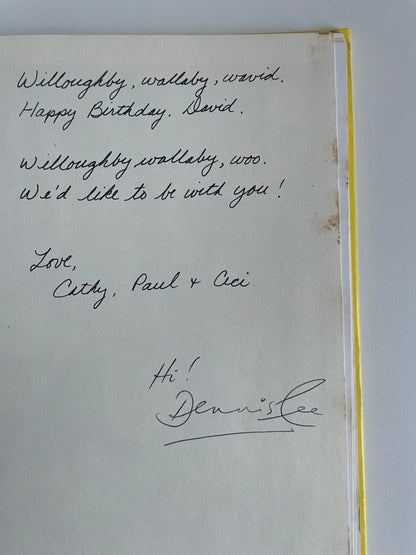 Willoughby, wallaby, wavid.
Happy Birthday, David.
Willoughby wallaby, woo.
We'd like to be with you!
Love,
Cathy, Paul & Ceci
Hi!
Dennis Lee